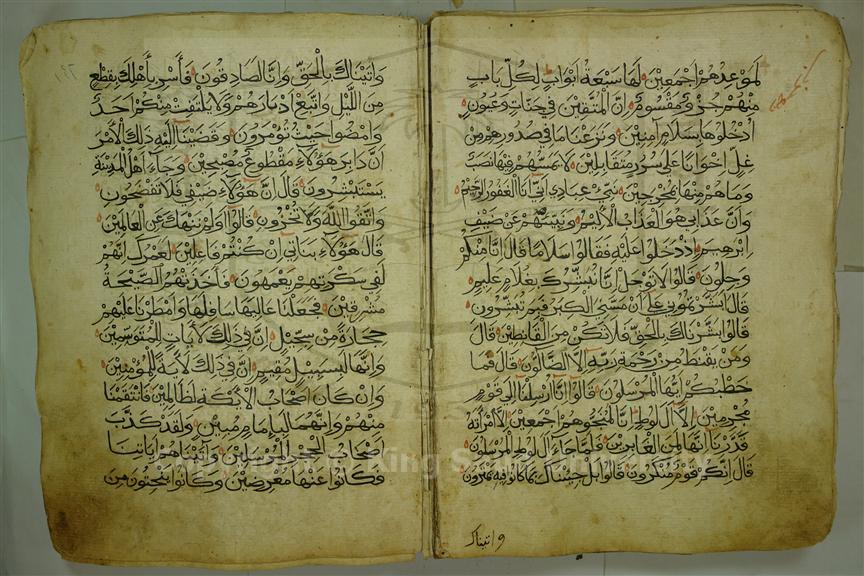 لموعدهم اجمعين لها سبعة ابواب لكل باب
منهم جزء مقسوم ان المتقين في جنات وعيون
ادخلوها بسلام آمنين ونزعنا ما في صدورهم من
غل اخوانا على سرر متقابلين لا يمسهم فيها نصب
وما هم منها بمخرجين نبئ عبادي اني انا الغفور الرحيم
وان عذابي هو العذاب الاليم ونبئهم عن ضيف
ابرهيم اذ دخلوا عليه فقالوا سلاما قال انا منكم
وجلون قالوا لا توجل انا نبشرك بغلام عليم
قال ابشرتموني على ان مسني الكبر فبم تبشرون
قالوا بشرناك بالحق فلا تكن من القانطين قال
ومن يقنط من رحمة ربه الا الضالون قال فما
خطبكم ايها المرسلون قالوا انا ارسلنا الى قوم
مجرمين الا آل لوط انا لمنجوهم اجمعين الا امرأته
قدرنا انها لمن الغابرين فلما جاء آل لوط المرسلون
قال انكم قوم منكرون قالوا بل جئناك بما كانوا فيه يمترون
واتيناك
واتيناك بالحق وانا لصادقون فأسر بأهلك بقطع
من الليل واتبع ادبارهم ولا يلتفت منكم احد
وامضوا حيث تؤمرون وقضينا اليه ذلك الأمر
ان دابر هؤلاء مقطوع مصبحين وجاء اهل المدينة
يستبشرون قال ان هؤلاء ضيفي فلا تفضحون
واتقوا الله ولا تخزون قالوا اولم ننهك عن العالمين
قال هؤلاء بناتي ان كنتم فاعلين لعمرك انهم
لفي سكرتهم يعمهون فأخذتهم الصيحة
مشرقين فجعلنا عاليها سافلها وامطرنا عليهم
حجارة من سجيل ان في ذلك لآيات للمتوسمين
وانها لبسبيل مقيم ان في ذلك لآية للمؤمنين
وان كان اصحاب الأيكة لظالمين فانتقمنا
منهم وانهما لبإمام مبين ولقد كذب
اصحاب الحجر المرسلين وآتيناهم آياتنا
فكانوا عنها معرضين وكانوا ينحتون من